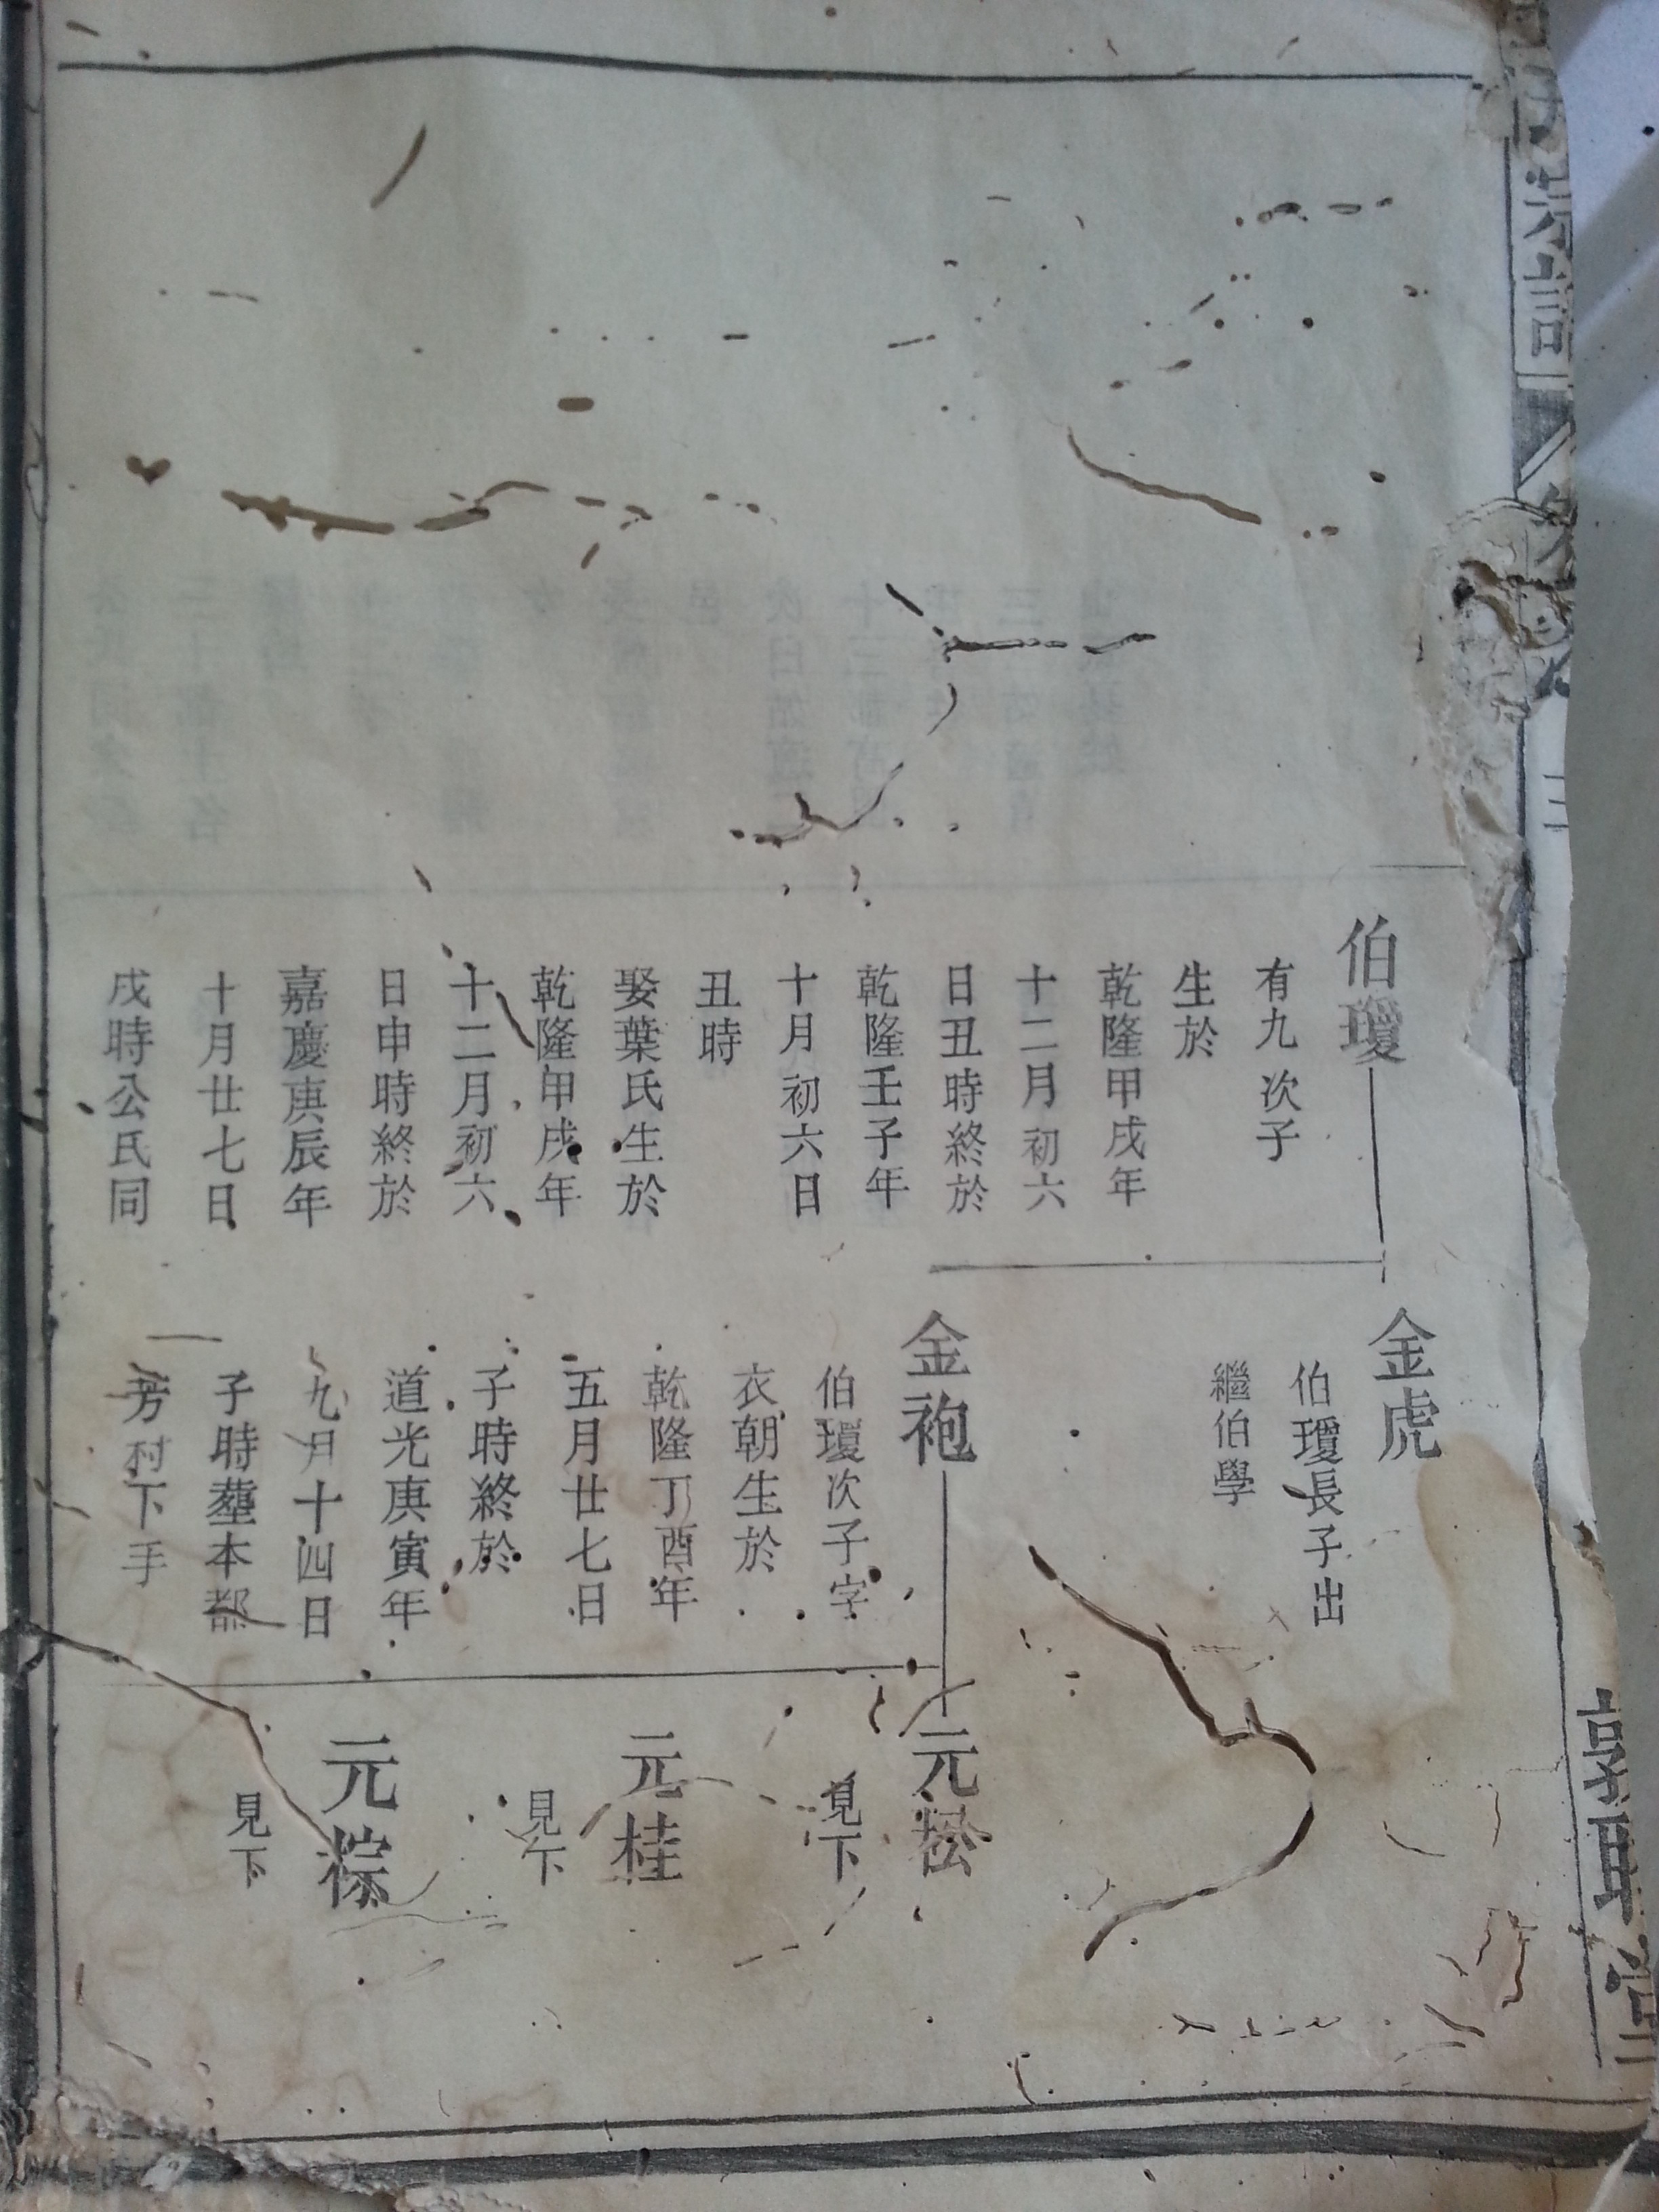 宗譜
伯瓊
有九次子
生於
乾隆甲戌年
十二月初六
日丑時終於
乾隆壬子年
十月初六日
丑時
娶葉氏生於
乾隆甲戌年
十二月初六
日申時終於
嘉慶庚辰年
十月廿七日
戌時公氏同
金虎
伯瓊長子出
繼伯學
金袍
伯瓊次子字
衣朝生於
乾隆丁酉年
五月廿七日
子時終於
道光庚寅年
九月十四日
子時塟本都
芳村下手
元松
見下
元桂
見下
元粽
見下